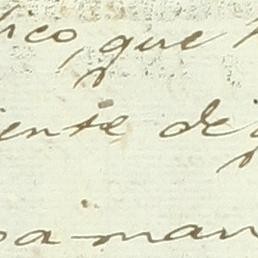 ico, que
iente de
a man